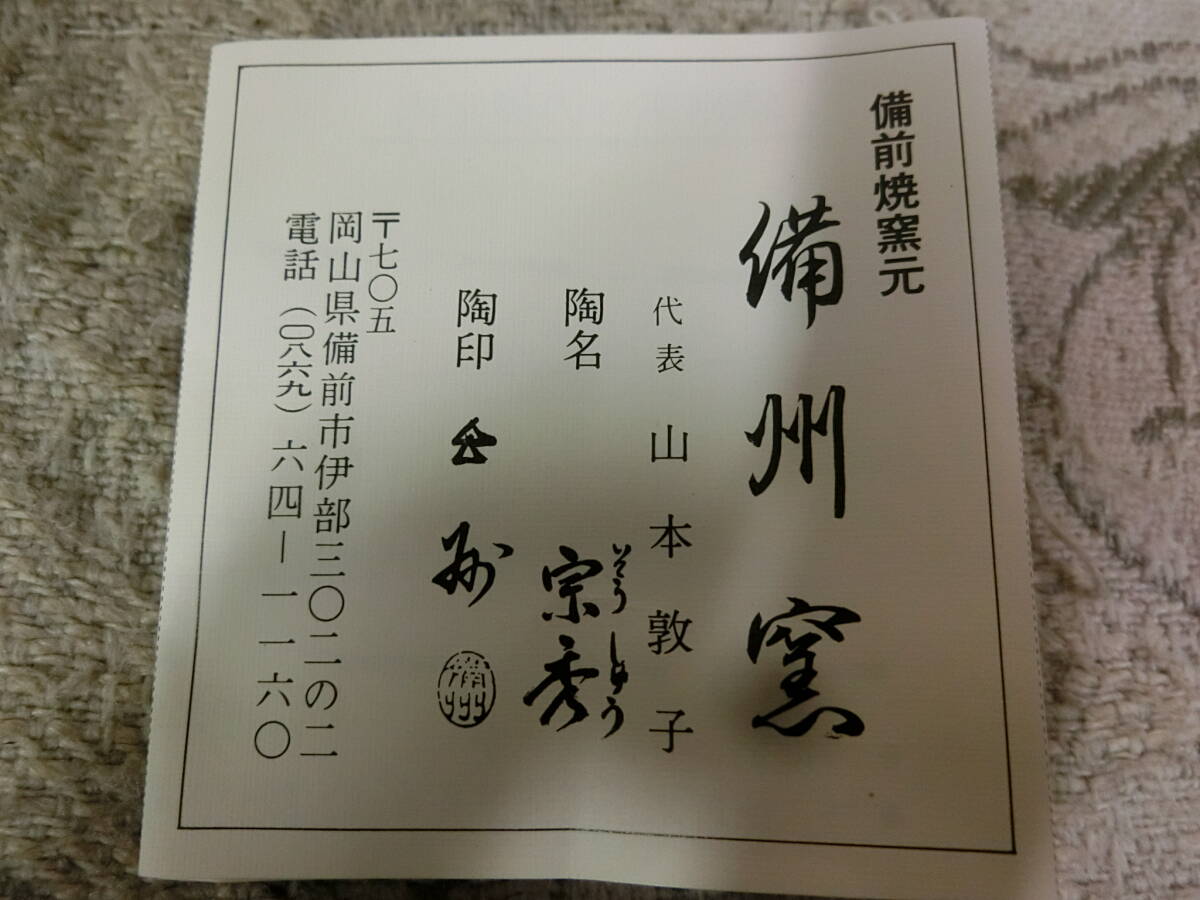 備前焼窯元
備州窯
代表 山本敦子
そうしゅう
陶名 宗秀
陶印
備州
〒七〇五
岡山県備前市伊部三〇二の二
電話(〇八六九)六四ー一一六〇